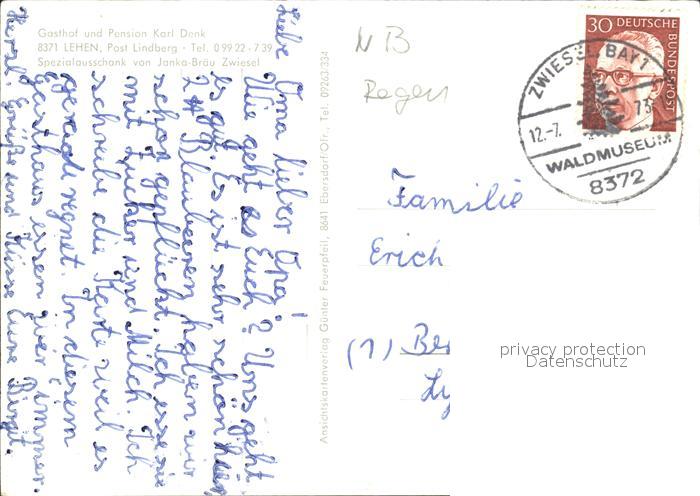 Gasthof und Pension Karl Denk
8371 LEHEN, Post Lindberg - Tel. 0 99 22 - 7 39
Spezialausschank von Janka-Bräu Zwiesel
Liebe Oma lieber Opa!
Wie geht es Euch? Uns geht
es gut. Es ist sehr schön hier
2 # Blaubeeren haben wir
schon gepflückt. Ich esse sie
mit Zucker und Milch. Ich
schreibe die Karte weil es
gerade regnet. In diesem
Gasthaus essen wir immer.
Herzl. Grüße und Küsse Eure Birgit.
Ansichtskartenverlag Günter Feuerpfeil, 8641 Ebersdorf/Ofr., Tel. 09263/334
NB
Regen
30 DEUTSCHE BUNDESPOST
ZWIESEL, BAY 1
12.-7. 73
WALDMUSEUM
8372
Familie
Erich
(1) Be
privacy protection
Datenschutz